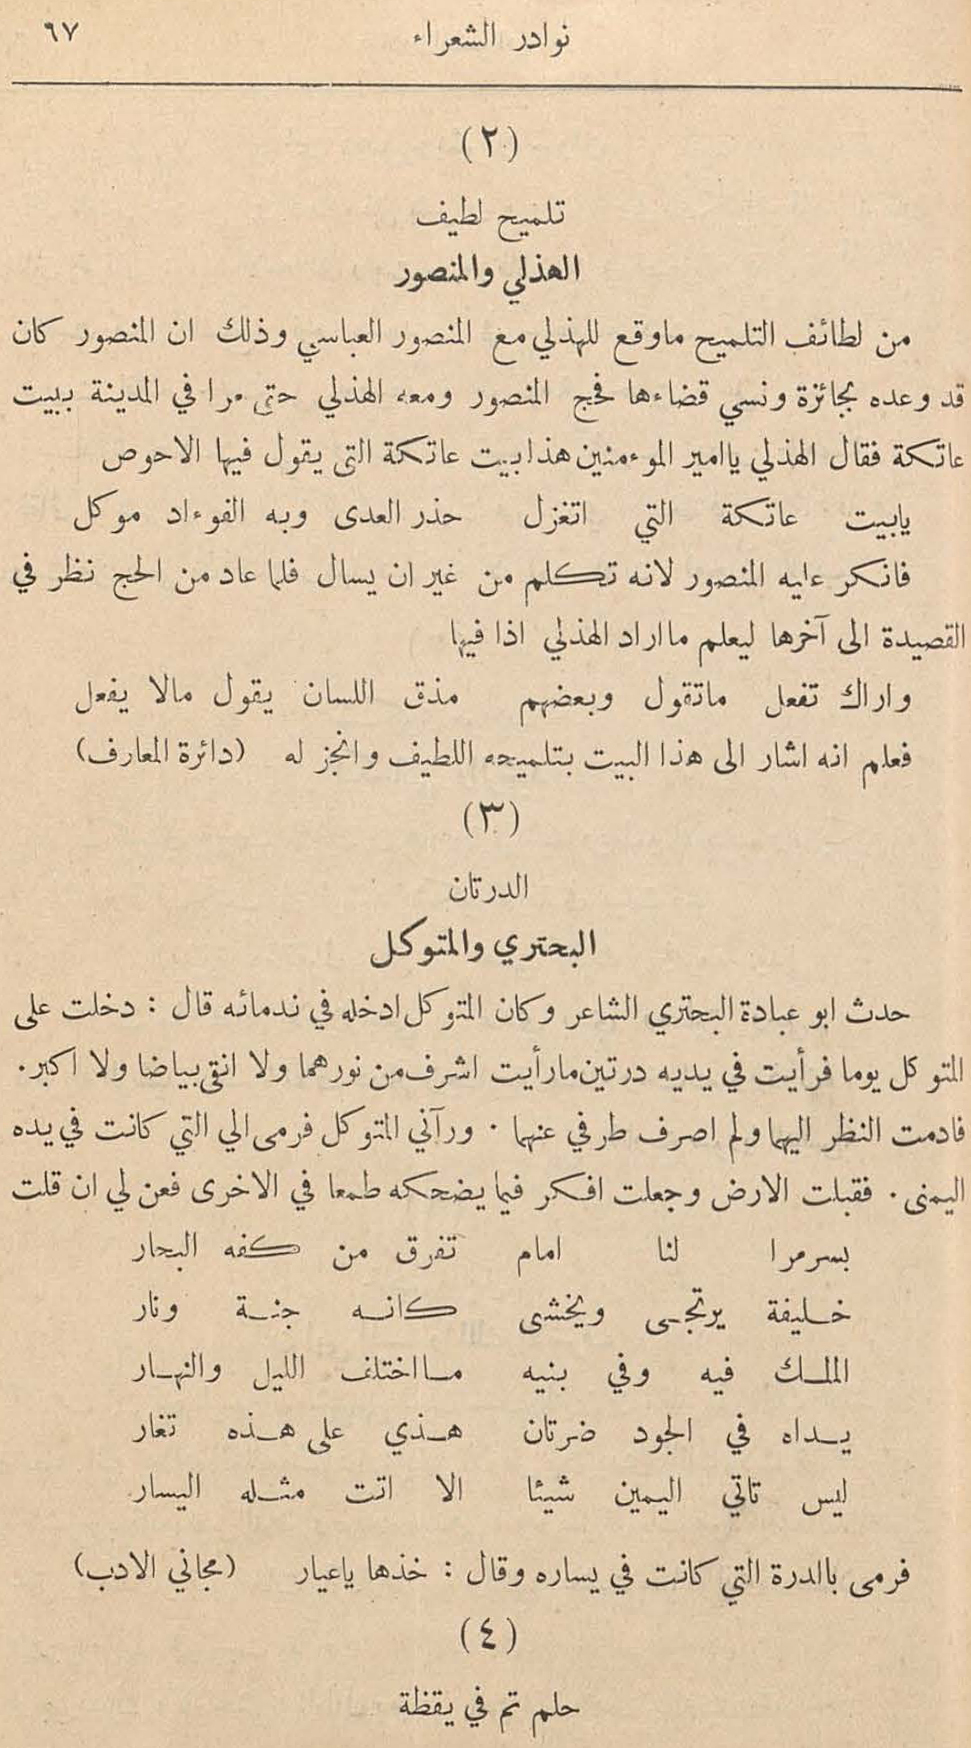 نوادر الشعراء ٦٧
(٢)
تلميح لطيف
الهذلي والمنصور
من لطائف التلميح ماوقع للهذلي مع المنصور العباسي وذلك ان المنصور كان
قد وعده بجائزة ونسي قضاءها فحج المنصور ومعه الهذلي حتى مرا في المدينة ببيت
عاتكة فقال الهذلي ياامير الموءمنين هذا بيت عاتكة التي يقول فيها الاحوص
يابيت عاتكة التي اتغزل حذر العدى وبه الفوءاد موكل
فانكر عليه المنصور لانه تكلم من غير ان يسال فلما عاد من الحج نظر في
القصيدة الى آخرها ليعلم مااراد الهذلي اذا فيها
واراك تفعل ماتقول وبعضهم مذق اللسان يقول مالا يفعل
فعلم انه اشار الى هذا البيت بتلميحه اللطيف وانجز له (دائرة المعارف)
(٣)
الدرتان
البحتري والمتوكل
حدث ابو عبادة البحتري الشاعر وكان المتوكل ادخله في ندمائه قال : دخلت على
المتوكل يوما فرأيت في يديه درتين مارأيت اشرف من نورهما ولا انقى بياضا ولا اكبر .
فادمت النظر اليهما ولم اصرف طرفي عنهما . ورآني المتوكل فرمى الي التي كانت في يده
اليمنى . فقبلت الارض وجعلت افكر فيما يضحكه طمعا في الاخرى فعن لي ان قلت
بسرمرا لنا امام تفرق من كفه البحار
خليفة يرتجى ويخشى كانه جنة ونار
الملك فيه وفي بنيه مااختلف الليل والنهار
يداه في الجود ضرتان هذي على هذه تغار
ليس تاتي اليمين شيئا الا اتت مثله اليسار
فرمى بالدرة التي كانت في يساره وقال : خذها ياعيار (مجاني الادب)
(٤)
حلم تم في يقظة